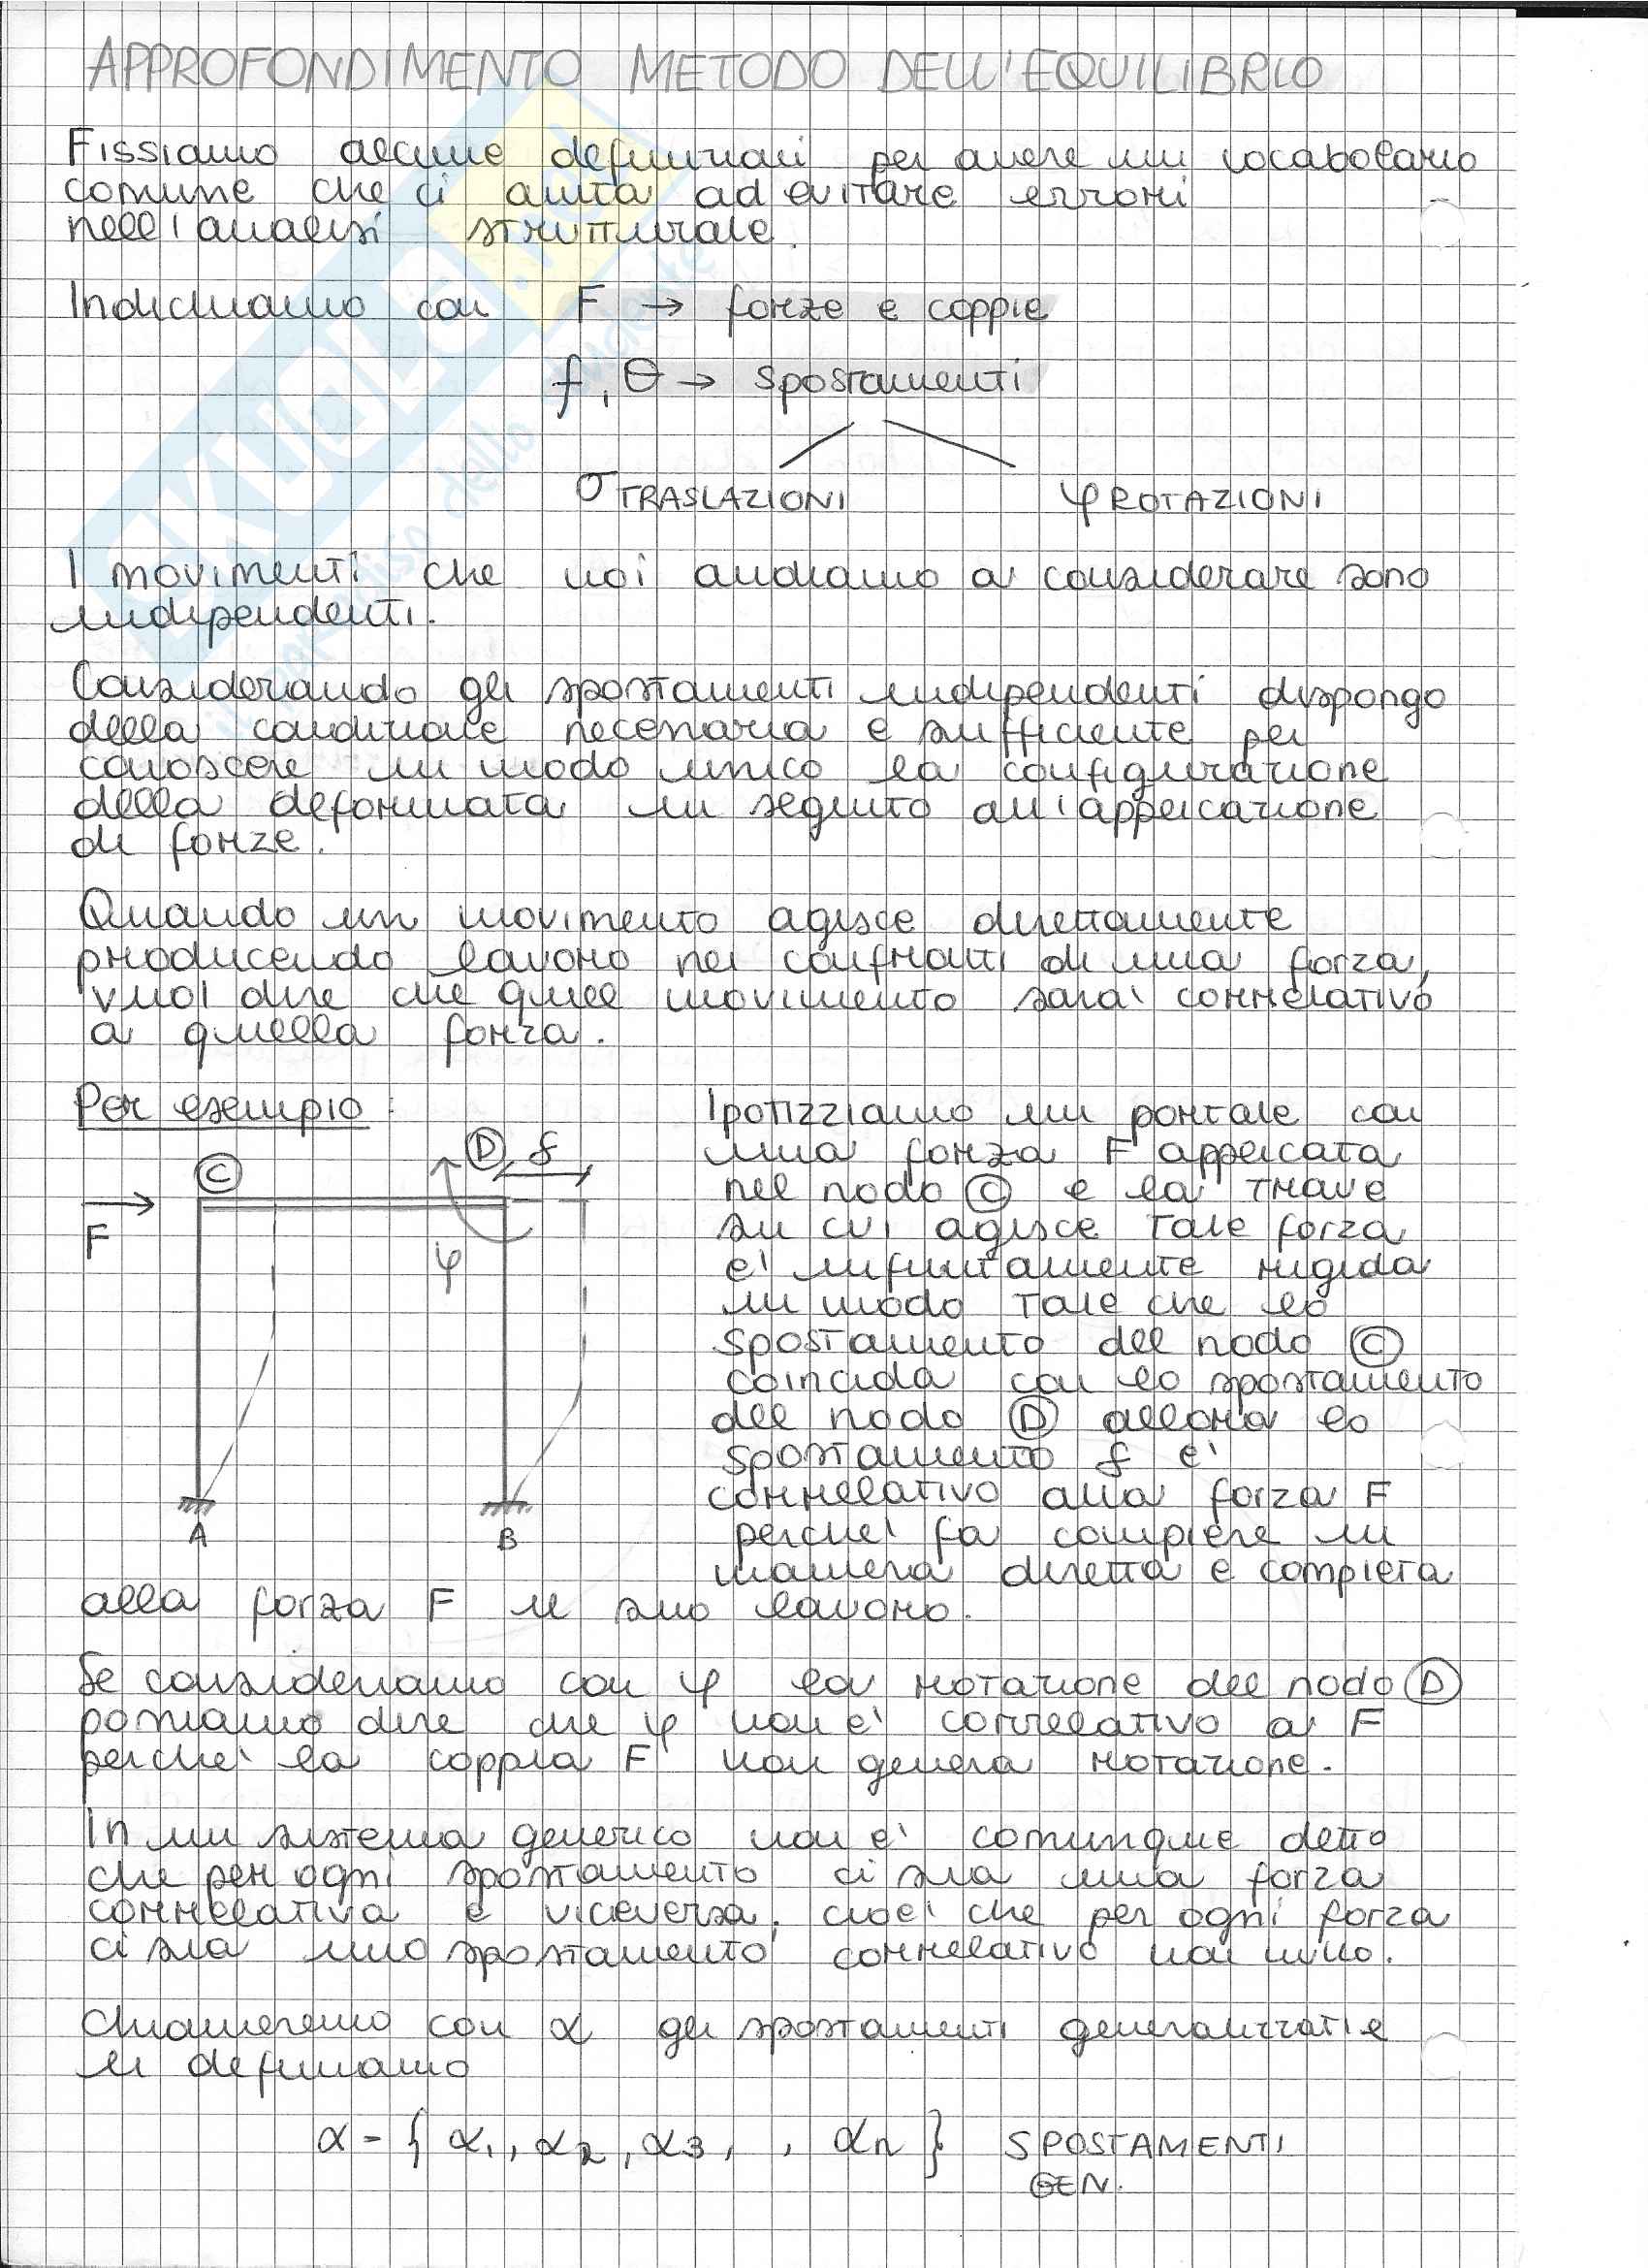 APPROFONDIMENTO METODO DELL'EQUILIBRIO
Fissiamo alcune definizioni per avere un vocabolario
comune che ci aiuta ad evitare errori
nell'analisi strutturale.
Indichiamo con F → forze e coppie
f, θ → spostamenti
σ TRASLAZIONI φ ROTAZIONI
I movimenti che noi andiamo a considerare sono
indipendenti.
Considerando gli spostamenti indipendenti dispongo
della condizione necessaria e sufficiente per
conoscere in modo unico la configurazione
della deformata in seguito all'applicazione
di forze.
Quando un movimento agisce direttamente
producendo lavoro nei confronti di una forza,
vuol dire che quel movimento sarà correlativo
a quella forza.
Per esempio:
Ipotizziamo un portale con
una forza F applicata
nel nodo C e la trave
su cui agisce tale forza
e' infinitamente rigida
in modo tale che lo
spostamento del nodo C
coincida con lo spostamento
del nodo D allora lo
spostamento f e'
correlativo alla forza F
perche' fa compiere in
maniera diretta e completa
C D f
F φ
A B
alla forza F il suo lavoro.
Se consideriamo con φ la rotazione del nodo D
possiamo dire che φ non e' correlativo a F
perche' la coppia F non genera rotazione.
In un sistema generico non e' comunque detto
che per ogni spostamento ci sia una forza
correlativa e viceversa, cioe' che per ogni forza
ci sia uno spostamento correlativo non nullo.
Chiameremo con α gli spostamenti generalizzati e
li definiamo
α = { α1, α2, α3, , αn } SPOSTAMENTI
GEN.
SKUOLA.net
il paradiso dello studente